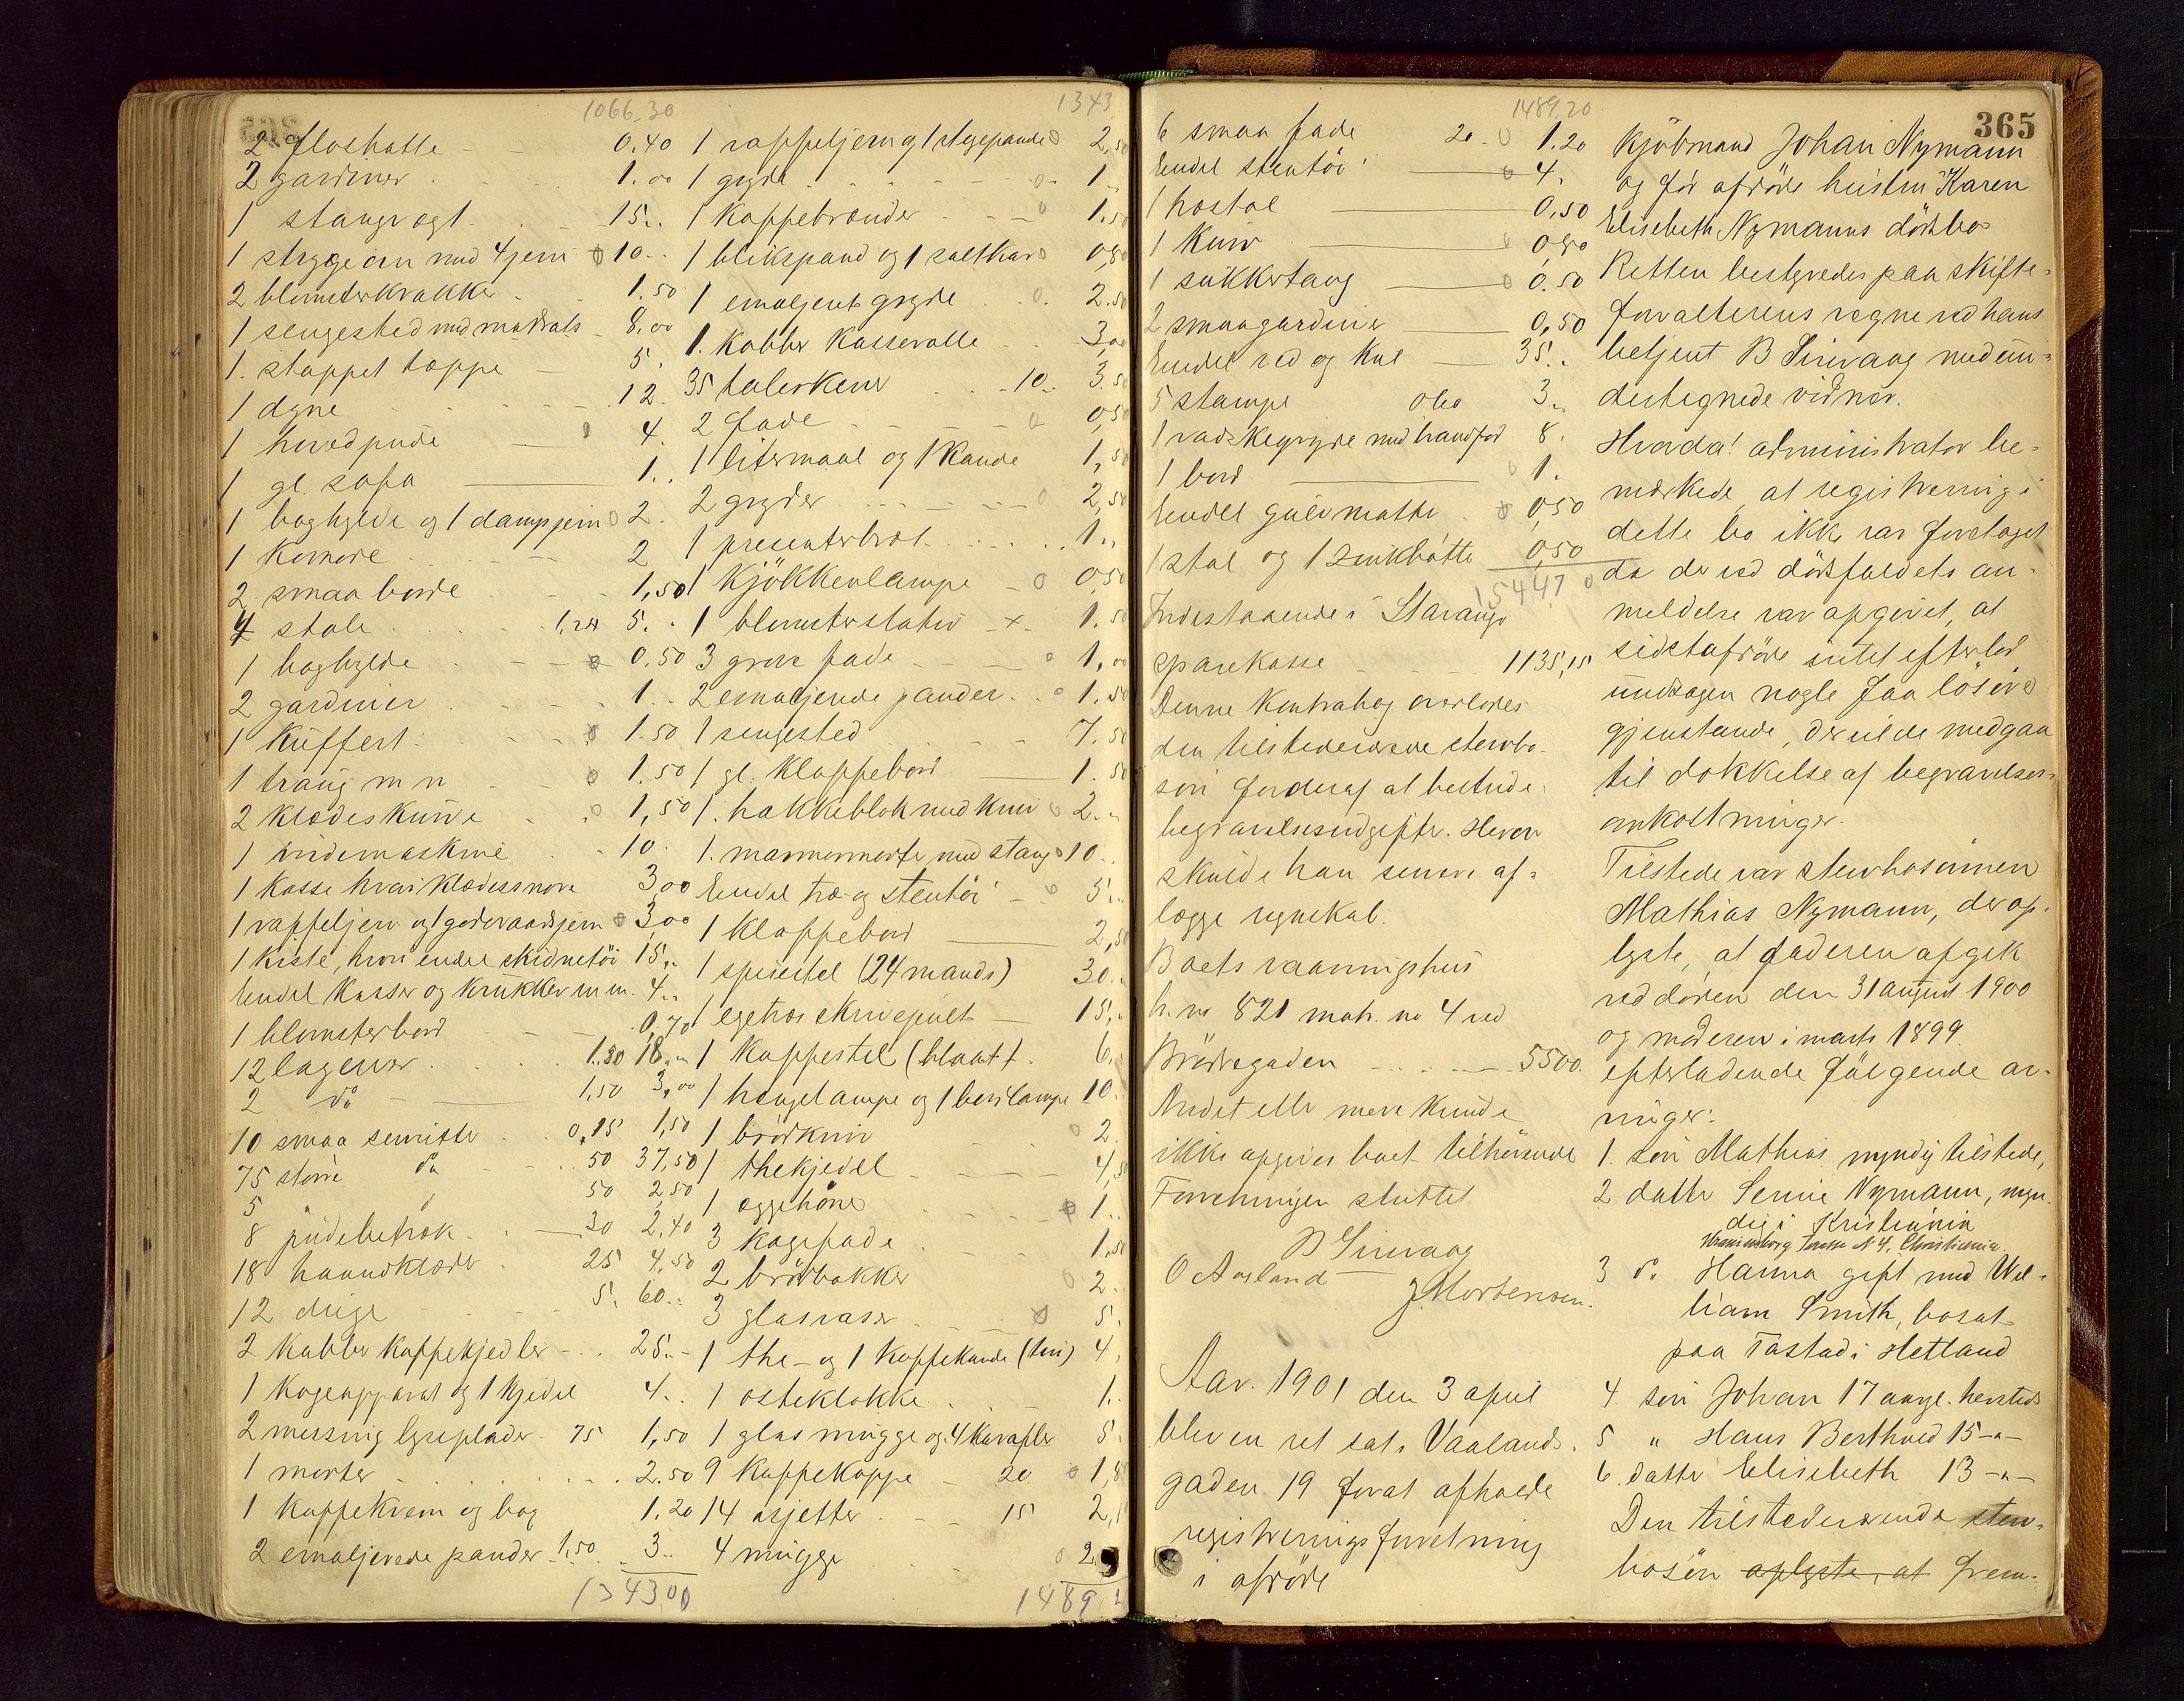 1066.30
2 floshatte 0.40
2 gardiner 1.00
1 stangvogt 15..
1 strygeovn med 4 jern 10..
2 blomsterkrakker 1.50
1 sengested med madrats 8,00
1. stoppet tæppe 5.
1 dyne 12.
1 hovedpude 4.
1 gl. sofa 1..
1 baghylde og 1 dampjern 2.
1 komode 2
2 smaa borde 1,50
4 stole 1,25 5..
1 boghylde 0.50
2 gardiner 1..
1 Kuffert 1.50
1 traug m m 1.50
2 klædeskurve 1,50
1 vridemaskine 10.
1 kasse hvori klædessnore 3,00
1 vaffeljern og 1 goderaadsjern 3,00
1 kiste, hvori endel skidnetöi 15..
Endel kasser og krukker m m. 4..
1 blomsterbord 0,70
12 lagener 1.50 18..
2 do 1,50 3,00
10 smaa servietter 0,15 1,50
75 större do 50 37,50
5 d 50 2,50
8 pudebetræk 30 2,40
18 haandklæder 25 4,50
12 duge 5. 60..
2 kobber kaffekjedler 25.-
1 kogeapparat og 1 kjedel 4..
2 messing lyseplader 75 1,50
1 morter 2.50
1 kaffekvern og bog 1,20
2 emaljerede pander 1,50 3..
134300
1343
1 vaffeljern og 1 stegepande 2,50
1 gryde 1..
1 kaffebrænder 1.50
1 blikspand og 1 saltkar 0,80
1 emaljert gryde 2.50
1. kobber kasserolle 3,00
35 talerkener 10.. 3.50
2 fade 0,50
1 litermaal og 1 kande 1,50
2 gryder 2,50
1 presenterbræt 1..
1 kjökkenlampe 0,50
1 blomsterstativ 1.50
3 grove fade 1,00
2 emaljerede pander 1.50
1 sengested 7.50
1 gl. klappebord 1.50
1. hakkeblok med kniv 2..
1. marmormorter med stang 10..
Endel træ- og stentöi 5..
1 klappebord 2,50
1 spisestel (24 mands) 30..
1 egetræs skrivepult 15..
1 kaffestel (blaat) 6.
1 hængelampe og 1 bordlampe 10.
1 brödkniv 2.
1 thekjedel 4,50
1 æggehöne 1..
3 kagefade 1,50
2 brödbakker 2.
3 glasvaser 5.
1 the- og 1 kaffekande (tin) 4.
1 osteklokke 1..
1 glas mugge og 4 karafler 5.
9 kaffekoppe 20 1,8
14 asjetter 15 2,1
4 mugge 2.
1489,2
1489,20
6 smaa fade 20 1.20
Endel stentöi 4.
1 hostol 0,50
1 kurv 0,50
1 sukkertang 0.50
2 smaagardiner 0,50
Endel ved og kul 35..
5 stampe obo 3..
1 vadskegryde med traadfod 8.
1 bord 1.
Endel gulvmatter 0,50
1 stol og 1 zinkbötte 0,50
1544,70
Indestaaende i Stavanger
sparekasse 1135,15
Denne kontrabog overlodes
den tilstedeværende stervbo-
sön forderaf at bestride
begravelsesudgifter. Herom
skulde han senere af-
lægge regnskab.
Boets vaaningshus
h. no 821 matr. no 4 ved
Brödregaden 5500.
Andet eller mere kunde
ikke opgives boet tilhörende
Forretningen sluttet
B Sirevaag
O Aasland J. Mortensen.
Aar. 1901 den 3 april
blev en ret sat i Vaalands-
gaden 19 forat afholde
registreringsforretning
i afdöde
365
Kjöbmand Johan Nymann
og för afdöde hustru Karen
Elisebeth Nymanns dödsbo
Retten bestyredes paa skifte-
forvalterens vegne ved hans
betjent B Sirevaag med un-
dertegnede vidner.
Hvorda! administrator be-
mærkede, at registrering i
dette bo ikke var foretaget
da der ved dödsfaldets an-
meldelse var opgivet, at
sidstafdöde intet efterlod
undtagen nogle faa lösöre
gjenstande, der vilde medgaa
til dækkelse af begravelses-
omkostninger.
Tilstede var stervbosönnen
Mathias Nymann, der op-
lyste, at faderen afgik
ved döden den 31 august 1900
og moderen i marts 1899.
efterladende fölgende ar-
vinger:
1. sön Mathias myndig tilstede,
2 datter Serine Nymann, myn-
dig i Kristiania
Uranienborg Terasse N 4, Christiania
3 do Hanna gift med Wil-
liam Smith, bosat
paa Tastad i Hetland
4. sön Johan 17 aar gl. hersteds
5 " Hans Berthoed 15 -"-
6. datter Elisebeth 13 -"-
Den tilstedeværende sterv-
bosön oplyste, at frem-